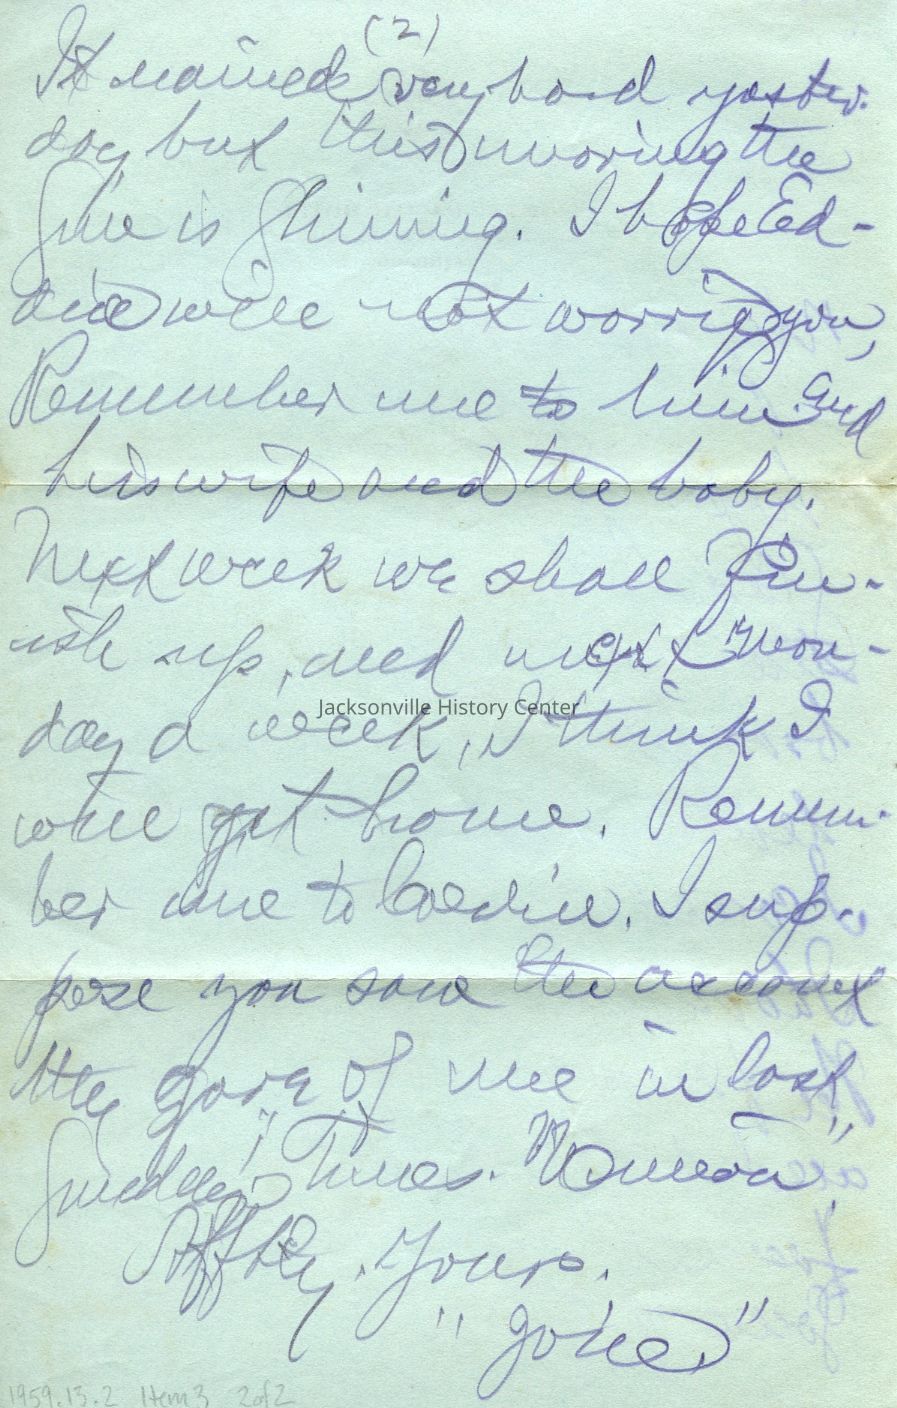 (2)
It rained very hard yester-
day but this morning the
Sun is Shining. I hope Ed-
die will not worry you,
Remember me to him and
his wife and the baby.
Next week we shall Fin-
ish up, and next Mon-
day a week, I think I
will get home. Remem-
ber me to I sup-
pose you saw the account
they gave of me in last
Sunday "Times.
Affly. Yours.
" "
Jacksonville History Center
1959.13.2 Item 3 2 of 2